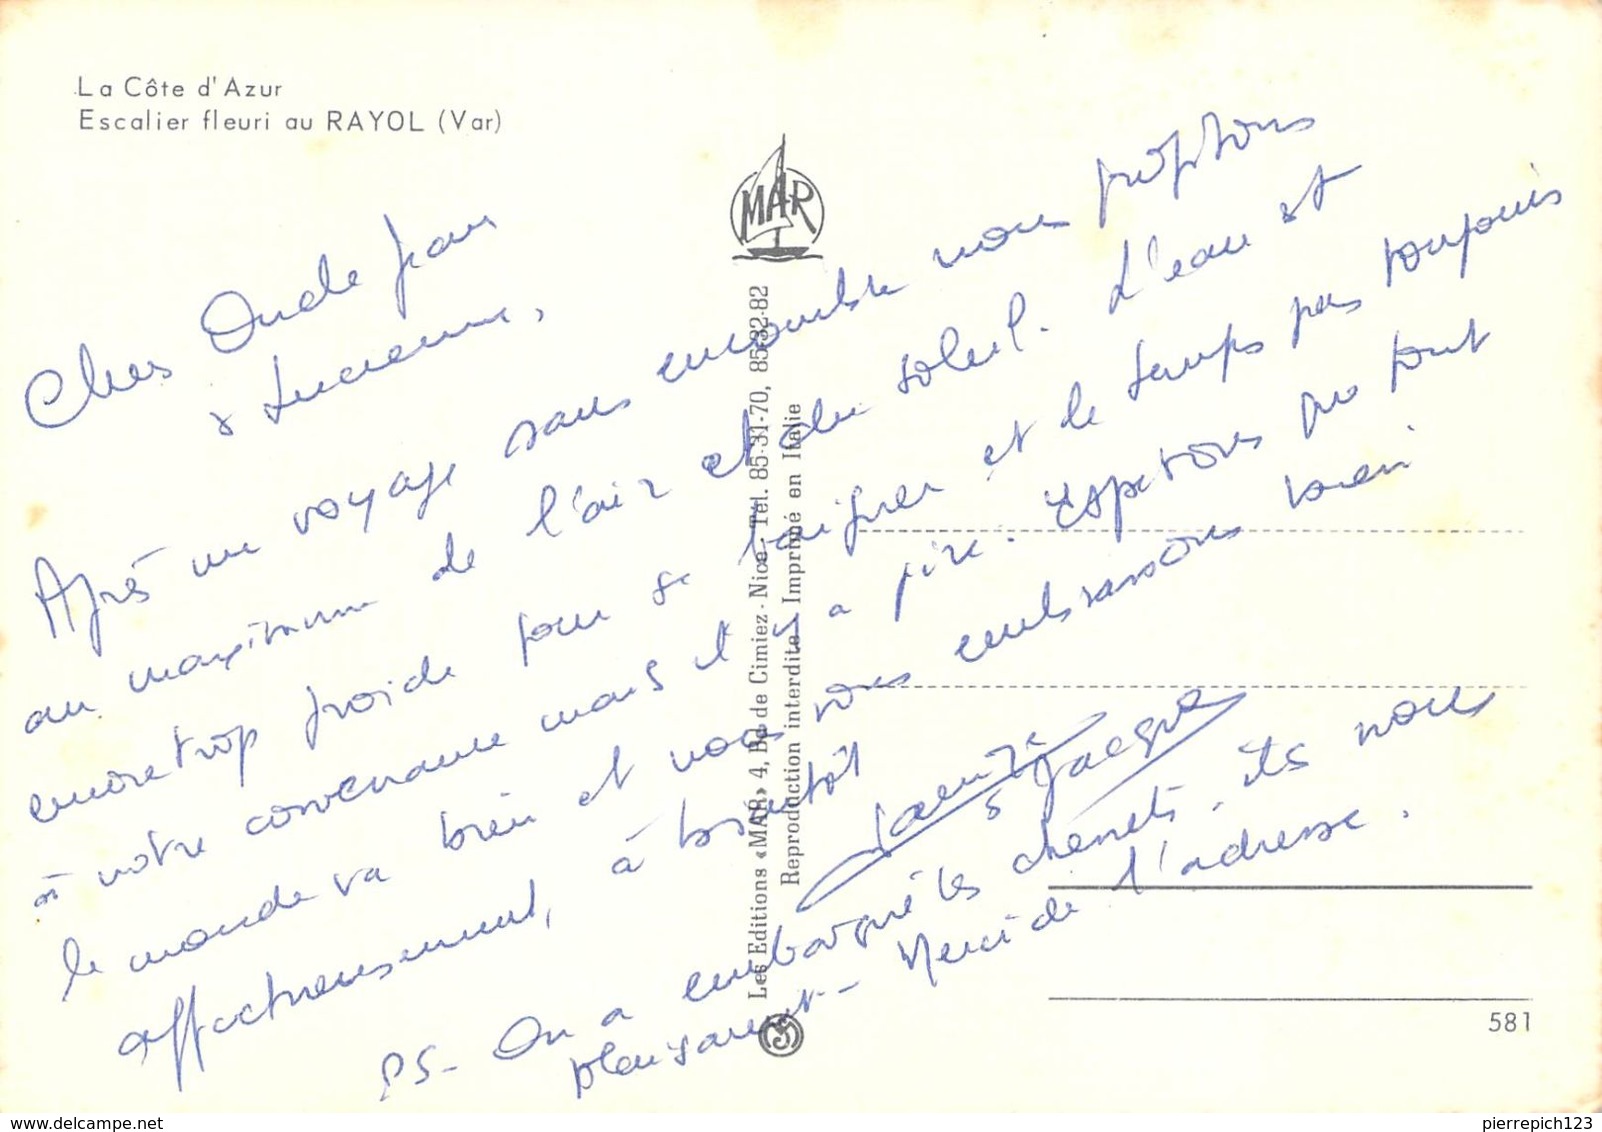 La Côte d'Azur
Escalier fleuri au RAYOL (Var)
MAR
Chers Oncle Jean
& Lucienne,
Après un voyage sans encombre nous profitons
au maximum de l'air et du soleil. L'eau est
encore trop froide pour se baigner et le temps pas toujours
à notre convenance mais il y a pire. Espérons que tout
le monde va bien et nous vous embrassons bien
affectueusement, à bientôt
& Jacques
PS - On a embarqué les chenets. ils nous
plaisent - Merci de l'adresse.
Les Editions «MAR» 4, Bd de Cimiez - Nice - Tél. 85-31-70, 85-32-82
Reproduction interdite - Imprimé en Italie
581
pierrepich123